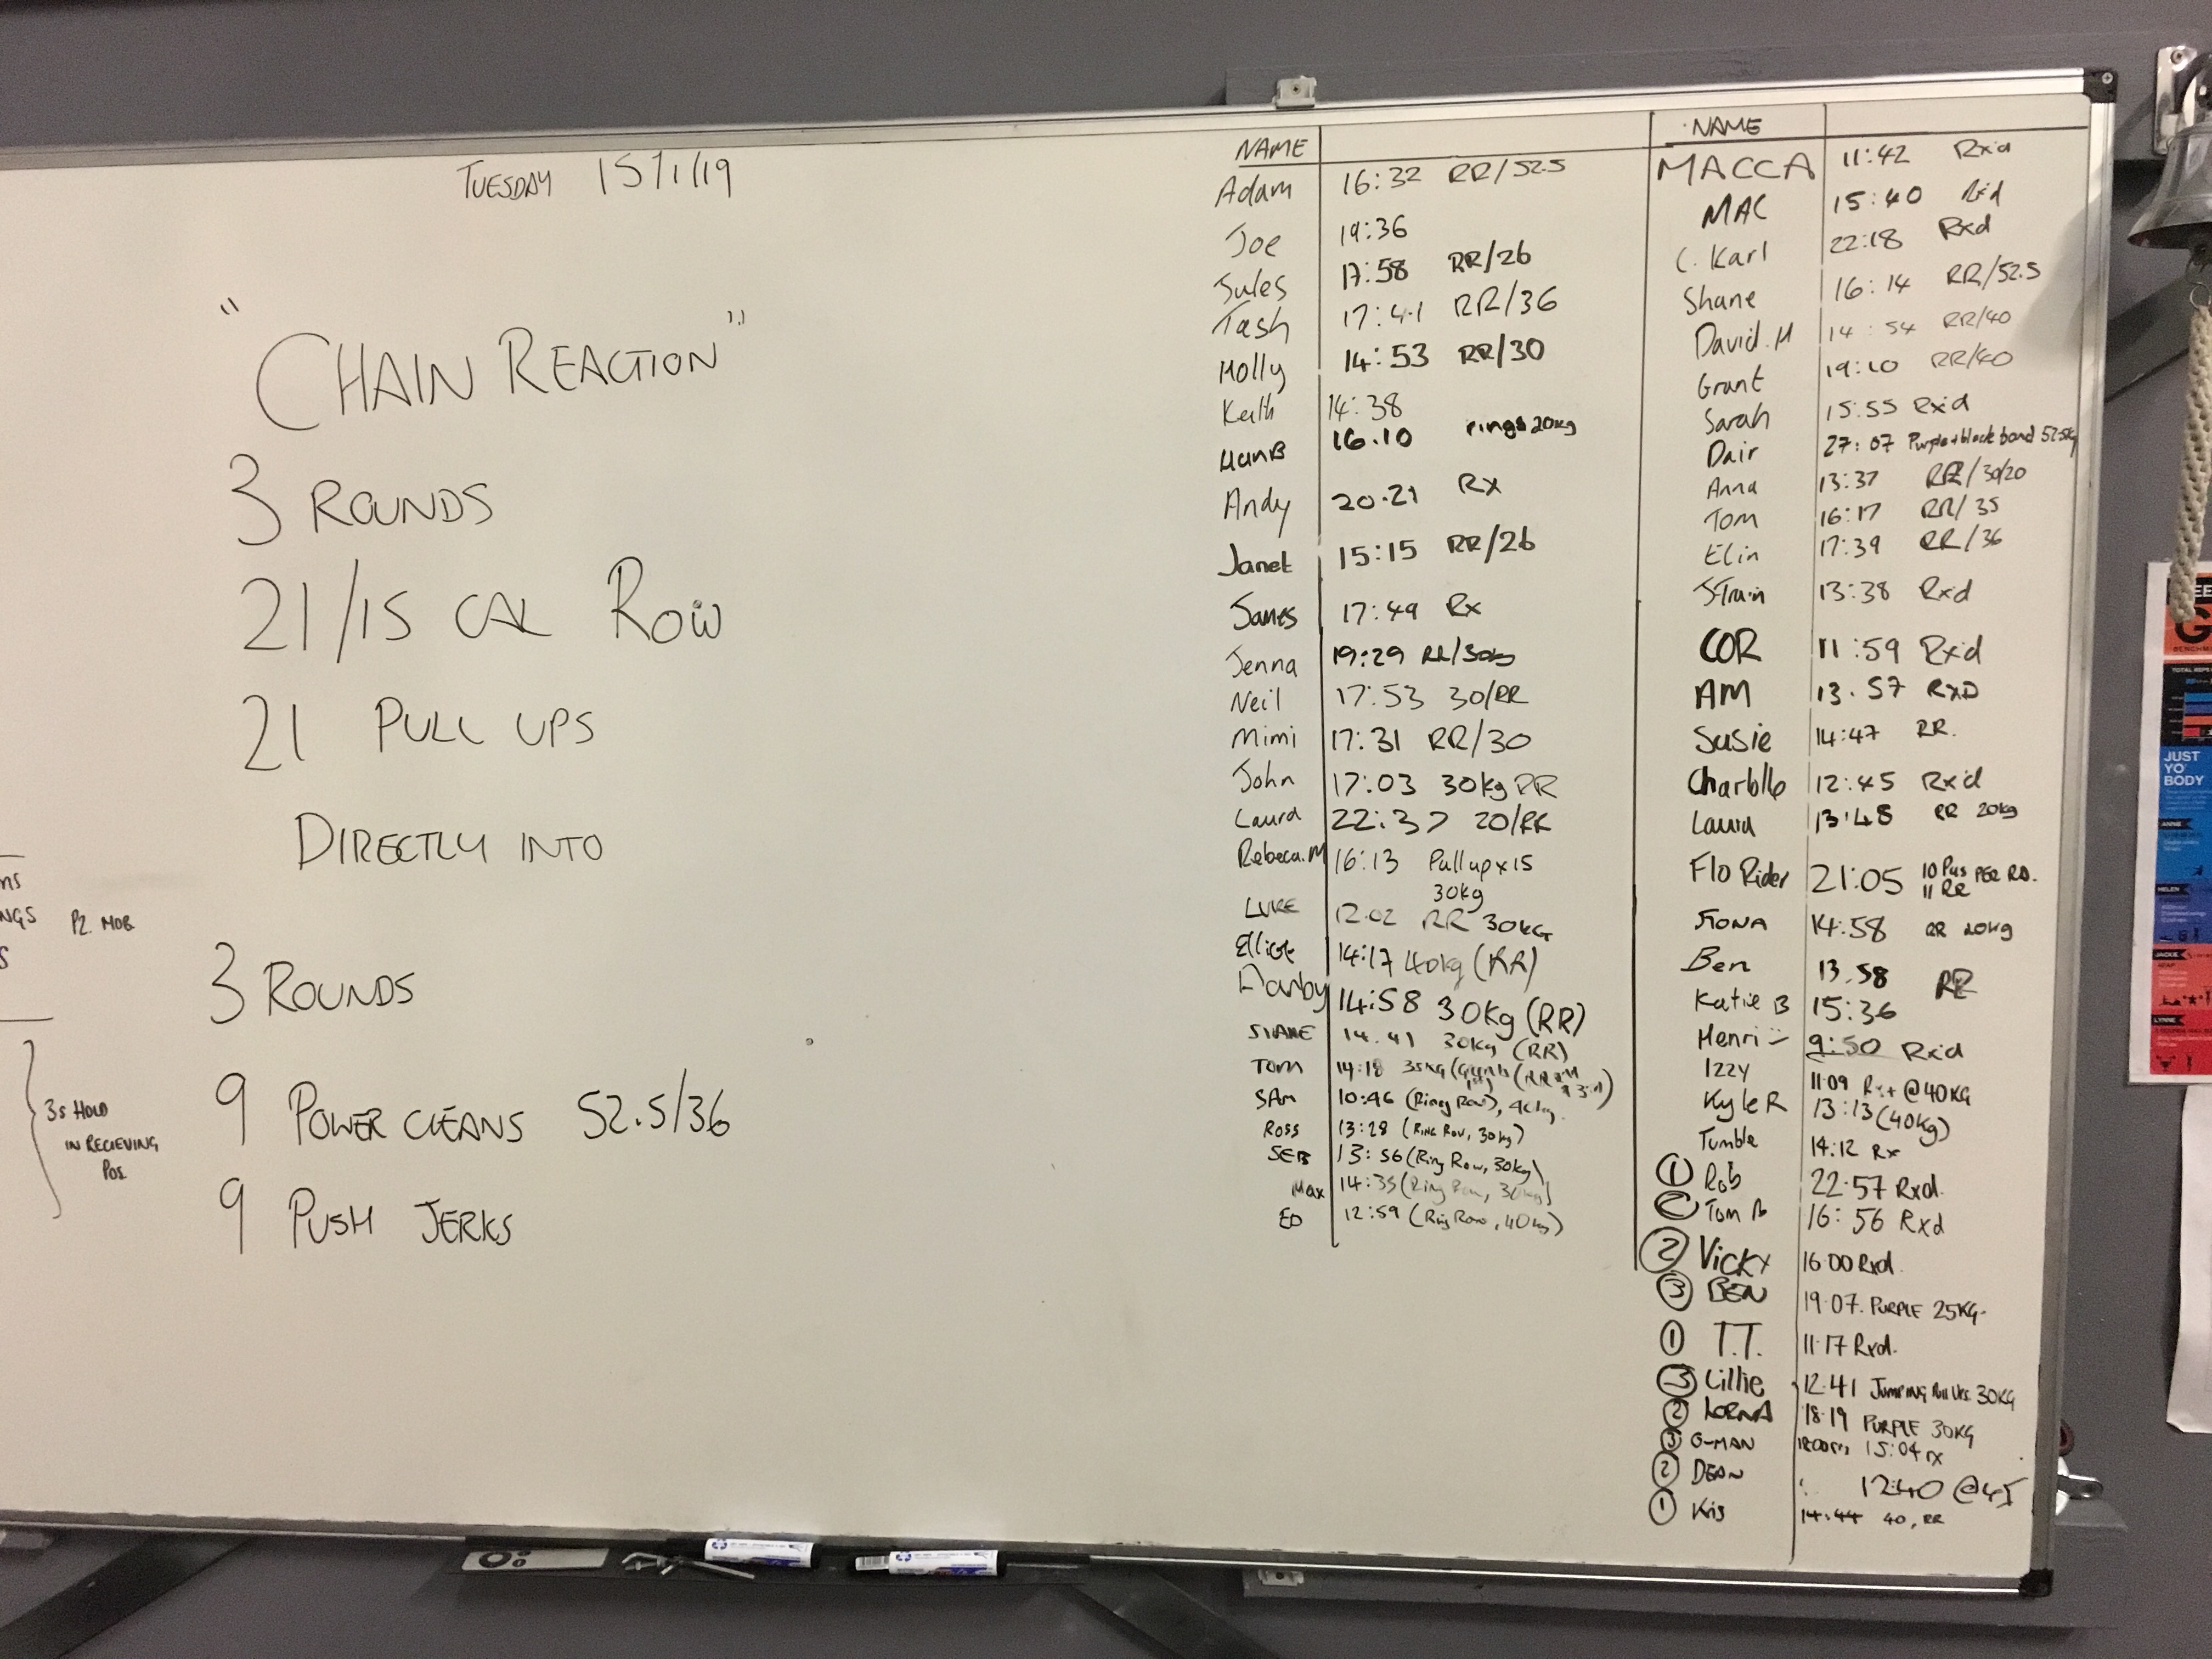 TUESDAY 15/1/19
"CHAIN REACTION"
3 ROUNDS
21/15 CAL ROW
21 PULL UPS
DIRECTLY INTO
3 ROUNDS
9 POWER CLEANS 52.5/36
9 PUSH JERKS
NGS P2. MOB
S
3s HOLD
IN RECIEVING
POS
NAME
Adam 16:32 RR/52.5
Joe 19:36
Jules 17:58 RR/26
Tash 17:41 RR/36
Holly 14:53 RR/30
Keith 14:38
HanB 16.10 rings 20kg
Andy 20.21 Rx
Janet 15:15 RR/26
James 17:49 Rx
Jenna 19:29 RR/30kg
Neil 17:53 30/RR
Mimi 17:31 RR/30
John 17:03 30kg RR
Laura 22:37 20/RR
Rebeca.M 16:13 Pull up x 15
30kg
LUKE 12.02 RR 30KG
Elliot 14:17 40kg (RR)
Danby 14:58 30Kg (RR)
SHANE 14.41 30Kg (RR)
TOM 14:18 35KG (RR
SAM 10:46 (Ring Row), 40kg.
ROSS 13:28 (RING ROW, 30kg)
SEB 13:56 (Ring Row, 30kg)
Max 14:35 (Ring Row, 30kg)
ED 12:59 (Ring Row, 40kg)
NAME
MACCA 11:42 Rxd
MAC 15:40 Rxd
C. Karl 22:18 Rxd
Shane 16:14 RR/52.5
David.H 14:54 RR/40
Grant 19:10 RR/40
Sarah 15:55 Rxd
Dair 27:07 Purple+black band 52.5kg
Anna 13:37 RR/30/20
Tom 16:17 RR/35
Elin 17:39 RR/36
J-Train 13:38 Rx'd
COR 11:59 Rx'd
AM 13.57 RXD
Susie 14:47 RR.
12:45 Rx'd
Laura 13:48 RR 20kg
Flo Rider 21:05 10 Pus PER RD.
11 RR
FIONA 14:58 RR 20kg
Ben 13.58 RR
Katie B 15:36
Henri 9:50 Rxd
Izzy 11:09 Rx+ @40KG
Kyle R 13:13 (40kg)
Tumble 14:12 Rx
① Rob 22:57 Rxd.
Tom B 16:56 Rxd
② Vicky 16:00 Rxd.
③ BEN 19.07. PURPLE 25KG.
① T.T. 11.17 Rxd.
③ Lillie 12:41 JUMPING Pull Ups 30KG
② LORNA 18:19 PURPLE 30KG
③ G-MAN 15:04 rx
② DEAN 12:40 @45
① Kis 14:44 40, RR
JUST
YO'
BODY
ANNIE
HELEN
JACKIE
LYNNE